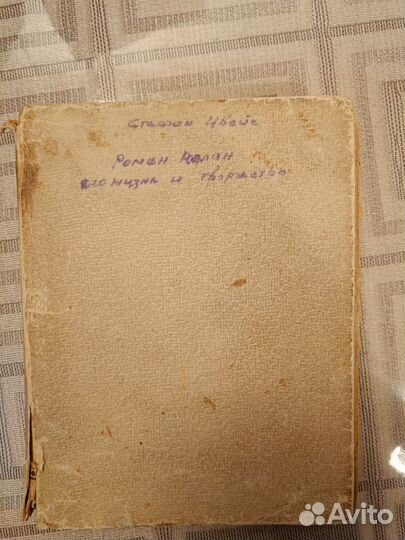 Стефан Цвейг
Ромен Ролан
его жизнь и творчество
Avito